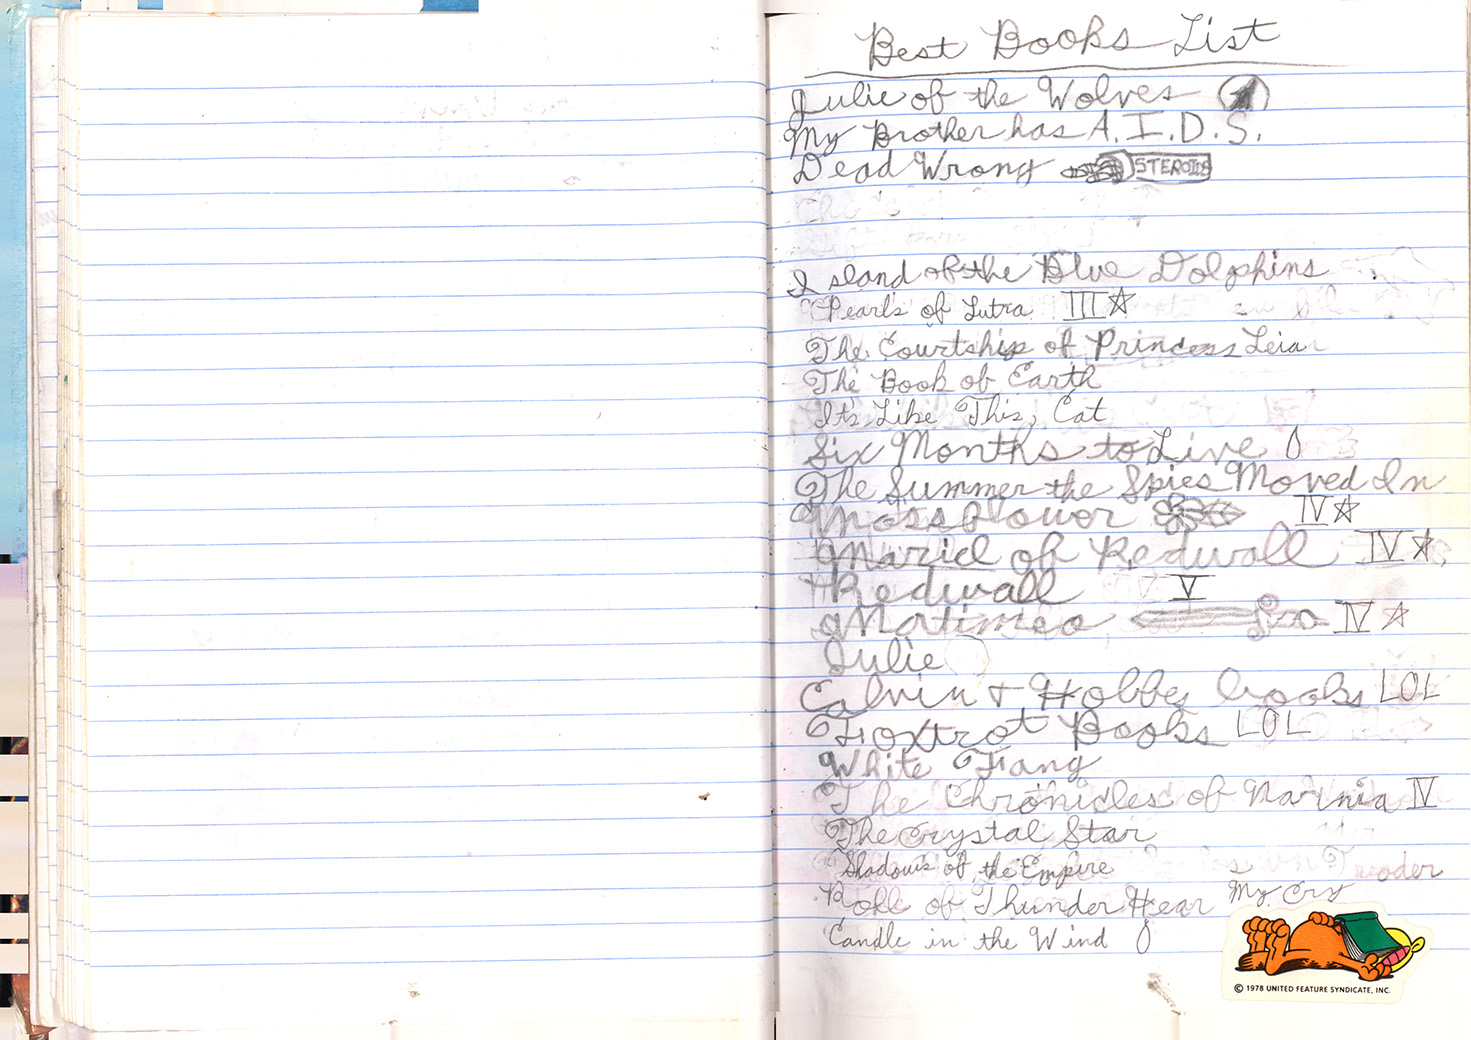 Best Books List
Julie of the Wolves
My Brother has A.I.D.S.
Dead Wrong STEROIDS
Island of the Blue Dolphins
Pearls of Lutra III
The Courtship of Princess Leia
The Book of Earth
It's Like This, Cat
Six Months to Live
The Summer the Spies Moved In
Mossflower IV
Mariel of Redwall IV
Redwall V
Matimeo IV
Julie
Calvin + Hobbes books LOL
Foxtrot Books LOL
White Fang
The Chronicles of Narnia IV
The Crystal Star
Shadows of the Empire
Roll of Thunder Hear My Cry
Candle in the Wind
© 1978 UNITED FEATURE SYNDICATE, INC.